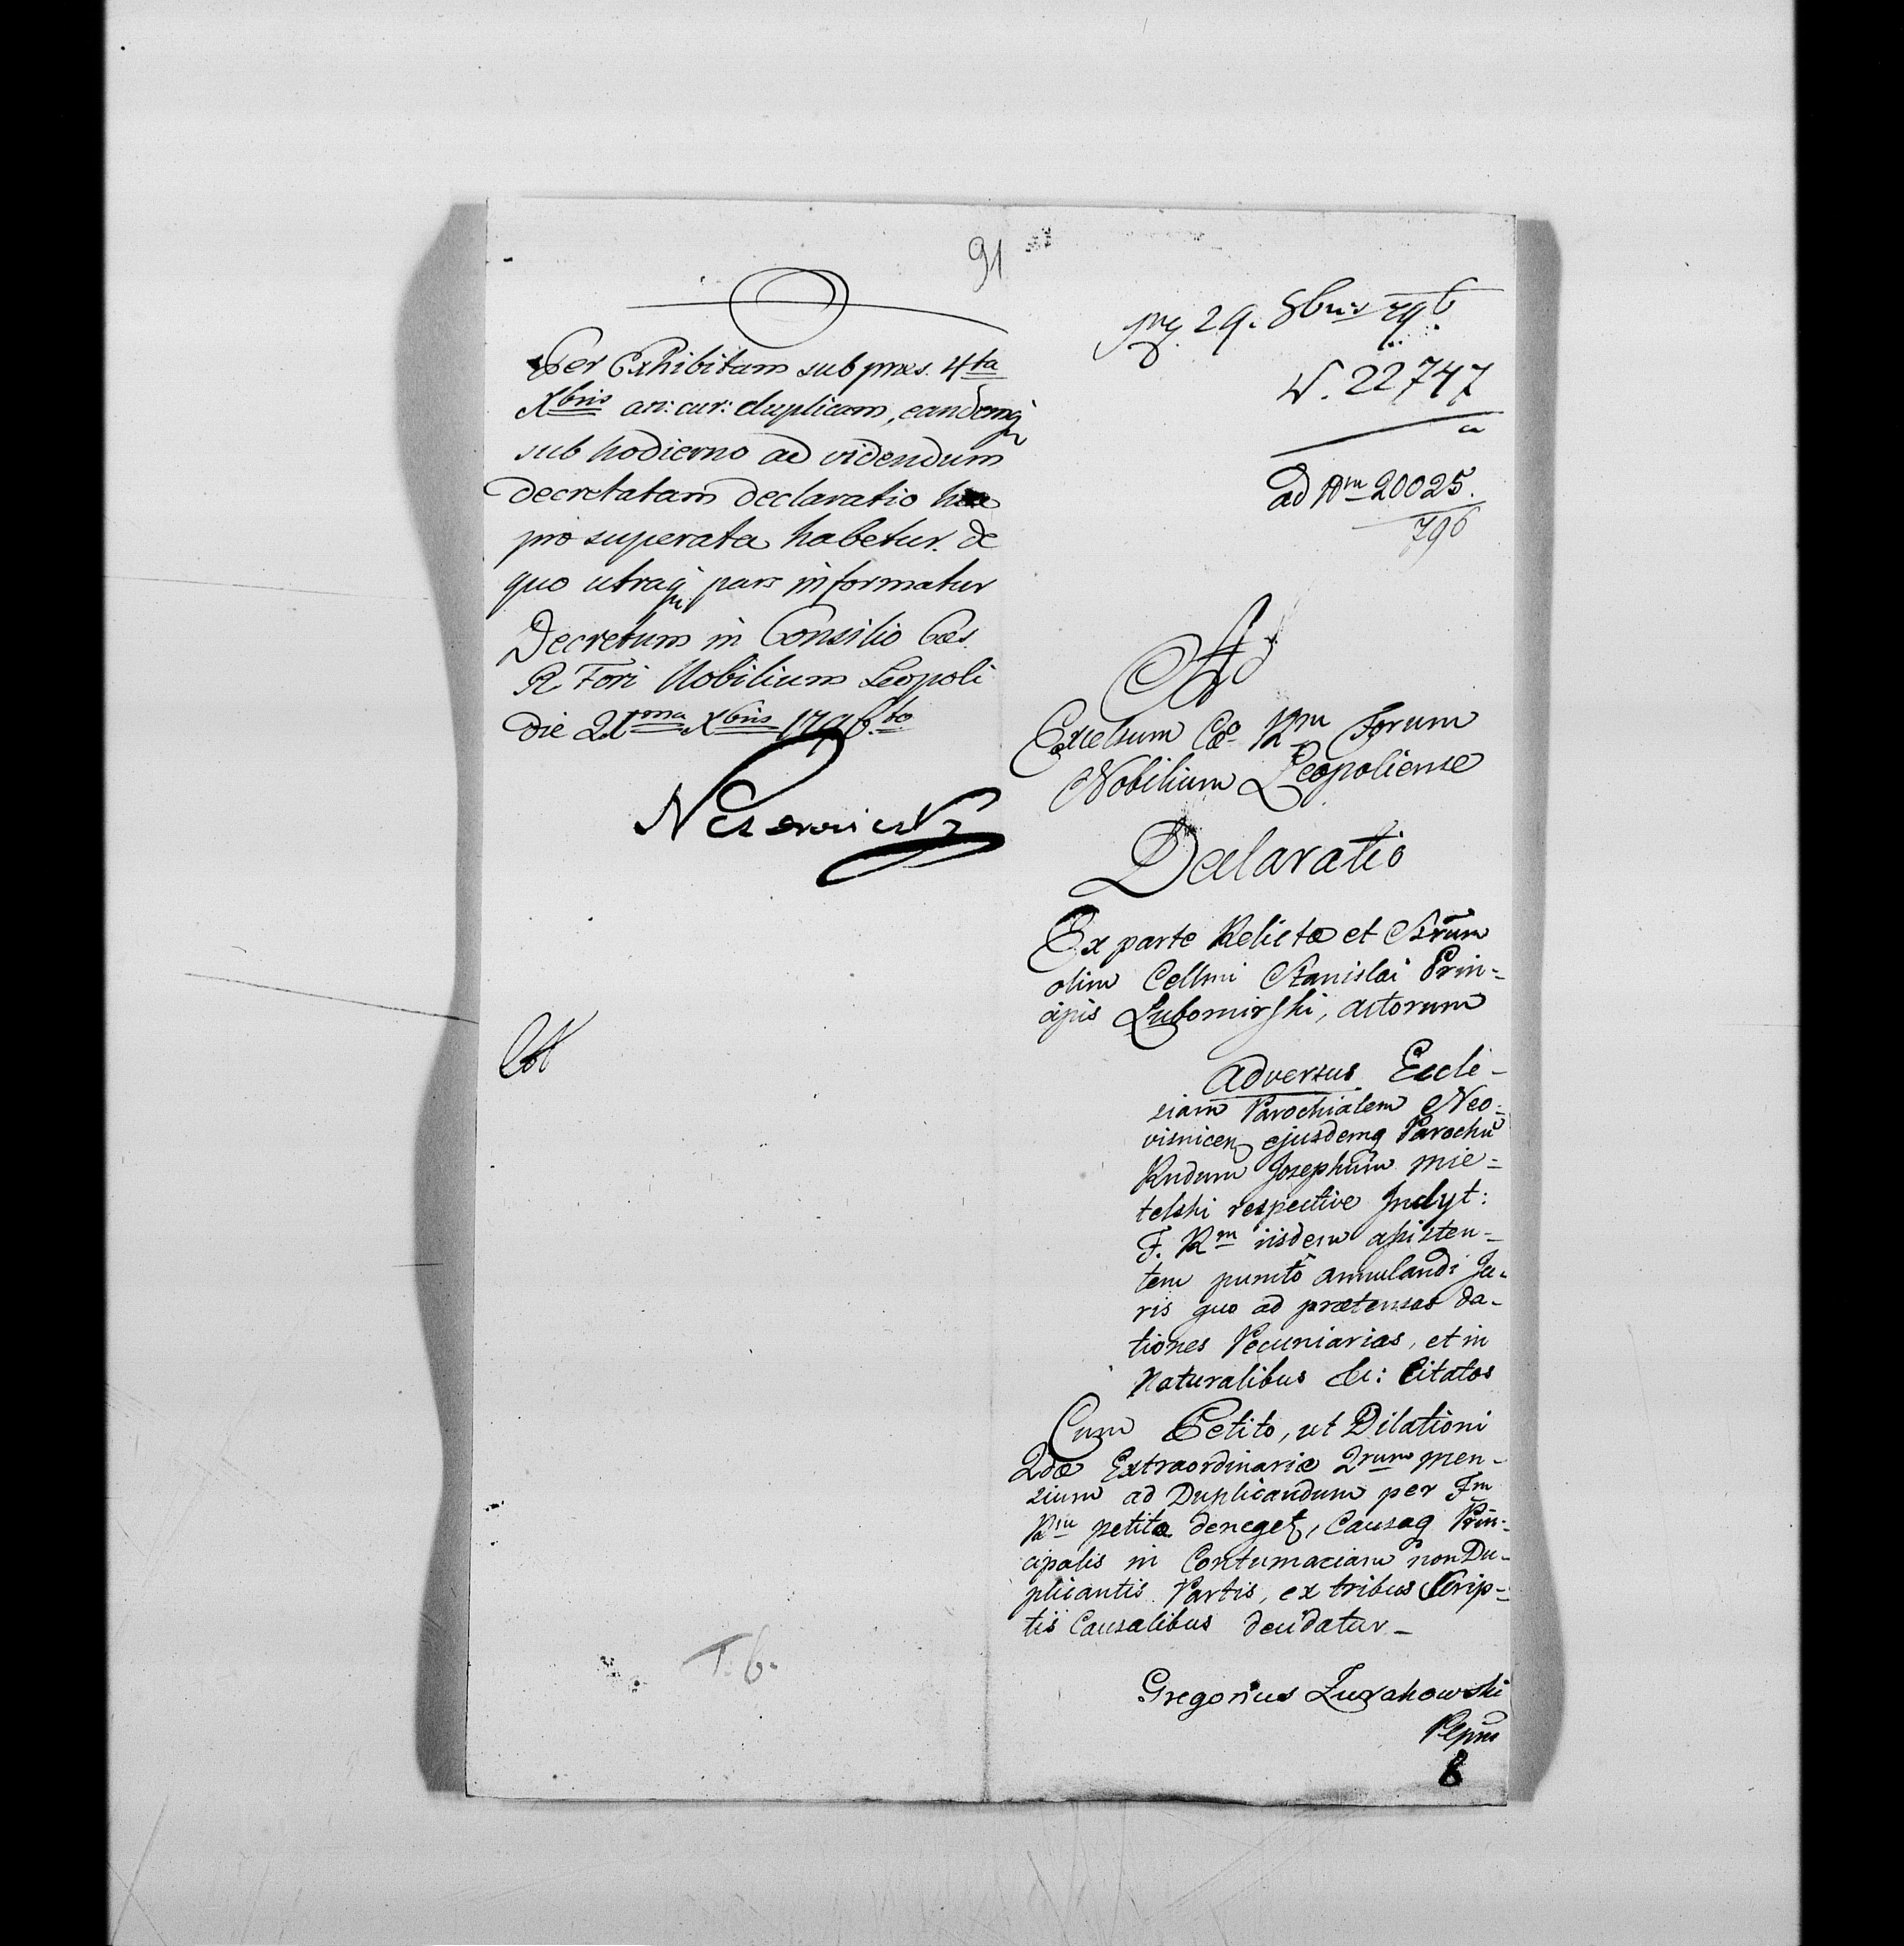 91
Per Exhibitam sub præs. 4ta
Xbris an: cur: duplicam, eandemq
sub hodierno ad videndum
decretatam declaratio hæc
pro superata habetur. de
quo utraq pars informatur
Decretum in Consilio Cæs.
R Fori Nobilium Leopoli
die 21ma Xbris 1796.to
T. 6.
29. 8bris 796
N. 22747
ad Nm 20025.
796
Ad
Excelsum Cæo Rum Forum
Nobilium Leopoliense
Declaratio
Ex parte Relictæ et Srum
olim Cellmi Stanislai Prin-
cipis Lubomirski, actorum
adversus Eccle-
siam Parochialem Neo-
visnicen ejusdemq Parochu
Rndum Josephum Mie-
telski respective Inclyt:
F. Rm iisdem assisten-
tem puncto annulandi Ju-
ris quo ad prætensas da-
tiones Pecuniarias, et in
Naturalibus &c: Citatos
Cum Petito, ut Dilationi
2dæ Extraordinariæ 2rum men-
sium ad Duplicandum per Fm
Rm petitæ deneget, Causaq Prin-
cipalis in Contumaciam non Du-
plicantis Partis, ex tribus Scrip-
tis Causalibus decidatur_
Gregorius Zurakowski
Plpm
8